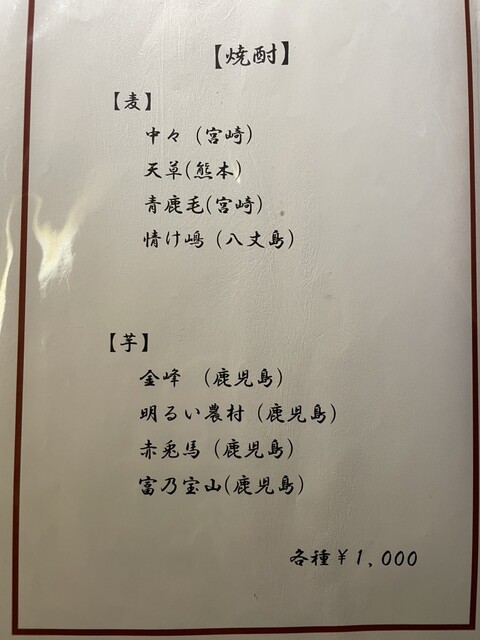 【焼酎】
【麦】
中々（宮崎）
天草(熊本)
青鹿毛(宮崎)
情け嶋（八丈島）
【芋】
金峰　（鹿児島）
明るい農村（鹿児島）
赤兎馬（鹿児島）
富乃宝山(鹿児島）
各種￥1,000